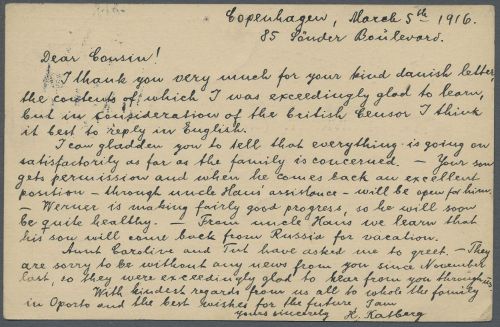 Copenhagen, March 5th 1916.
85 Sönder Boulevard.
Dear Cousin!
I thank you very much for your kind danish letter,
the contents of which I was exceedingly glad to learn,
but in consideration of the British Censor I think
it best to reply in English.
I can gladden you to tell that everything is going on
satisfactorily as far as the family is concerned. — Your son
gets permission and when he comes back an excellent
position — through uncle Hans' assistance — will be open for him.
— Werner is making fairly good progress, so he will soon
be quite healthy. — From uncle Hans we learn that
his son will come back from Russia for vacation.
Aunt Caroline and have asked me to greet. — They
are sorry to be without any news from you since November
last, so they were exceedingly glad to hear from you through us.
With kindest regards from us all to whole the family
in Oporto and the best wishes for the future I am
yours sincerely K.